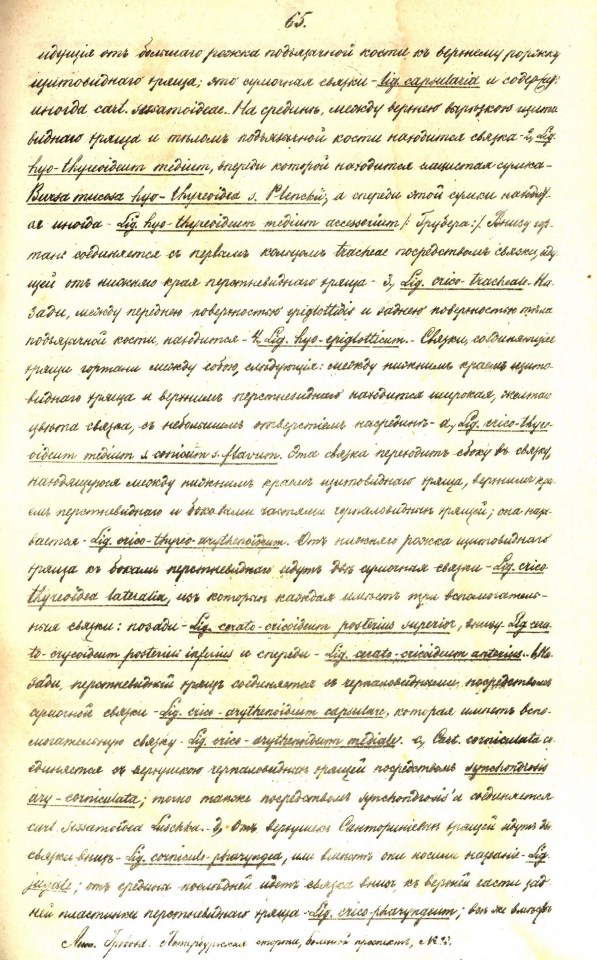 65.
идущія отъ большаго рожка подъязычной кости къ верхнему рожку
щитовиднаго хряща; это сумочная связки - lig. capsularia и содержи
иногда cart. sesamoideae. На срединѣ, между верхнею вырѣзкою щито
виднаго хряща и тѣломъ подъязычной кости находится связка - 2, Lig.
hyo-thyreoideum medium, впереди которой находится слизистая сумка -
Bursa mucosa hyo-thyreoidea s. Plenskij, а спереди этой сумки находит
ся иногда - Lig. hyo-thyreoideum medium accessorium /: Грубера:/ Внизу гор
тань соединяется съ первымъ кольцомъ tracheae посредствомъ связки, иду
щей отъ нижняго края перстневиднаго хряща - 3, Lig. crico-tracheale. На
зади, между переднею поверхностью epiglottidis и заднею поверхностью тѣла
подъязычной кости, находится - 4, Lig. hyo-epiglotticum. - Связки, соединяющіе
хрящи гортани между собою, слѣдующія: между нижнимъ краемъ щито
виднаго хряща и верхнимъ перстневиднаго находится широкая, желтаго
цвѣта связка, съ небольшимъ отверстіемъ насрединѣ - a, Lig. crico-thyre
oideum medium s. conicum s. flavum. Эта связка переходитъ сбоку въ связку,
находящуюся между нижнимъ краемъ щитовиднаго хряща, верхнимъ кра
емъ перстневиднаго и боковыми частями черпаловидныхъ хрящей; она назы
вается - Lig. crico-thyreo-arythenoideum. Отъ нижняго рожка щитовиднаго
хряща къ бокамъ перстневиднаго идутъ двѣ сумочная связки - Lig. crico
thyreoidea lateralia, изъ которыхъ каждая имѣетъ три вспомогатель-
ныя связки: позади - Lig. cerato-cricoideum posterius superior, внизу Lig. cera
to-crycoideum posterius inferius и спереди - Lig. cerato-cricoideum anterius. - b, На
зади, перстневидный хрящъ соединяется съ черпаловидными, посредствомъ
сумочной связки - Lig. crico-arythenoideum capsulare, которая имѣетъ вспо
могательную связку - Lig. crico-arythenoideum mediale. c, Cart. corniculata со
единяется съ верхушкою черпаловидныхъ хрящей посредствомъ synchondrosis
ary-corniculata; точно также посредствомъ synchondrosis'а соединяется
cart. sesamoidea Luschka. - d, Отъ верхушекъ Санториніевыхъ хрящей идутъ двѣ
связки внизъ - Lig. corniculo-pharyngea, или вмѣстѣ они носятъ названіе - Lig.
jugale; отъ средины послѣдней идетъ связка внизъ, къ верхней части зад
ней пластинки перстневиднаго хряща - Lig. crico-pharyngeum; все же вмѣстѣ
Лит. Гробова. Петербургская сторона, Большой проспектъ,